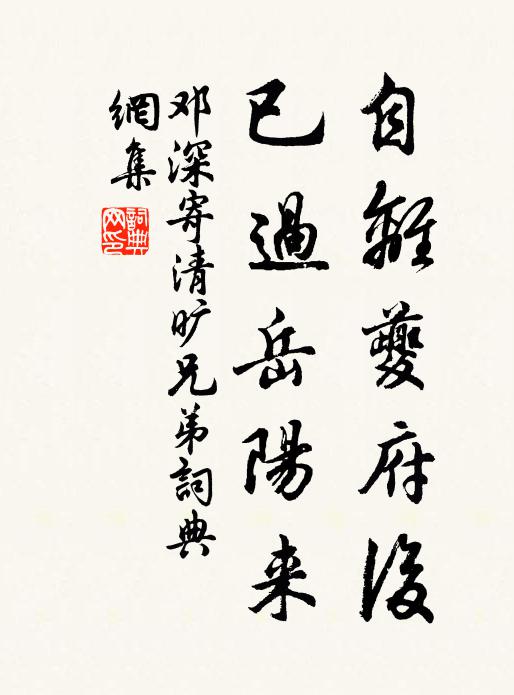 自離夔府後
已過岳陽来
邓深寄清旷兄弟詞典
網集
詞典
网印